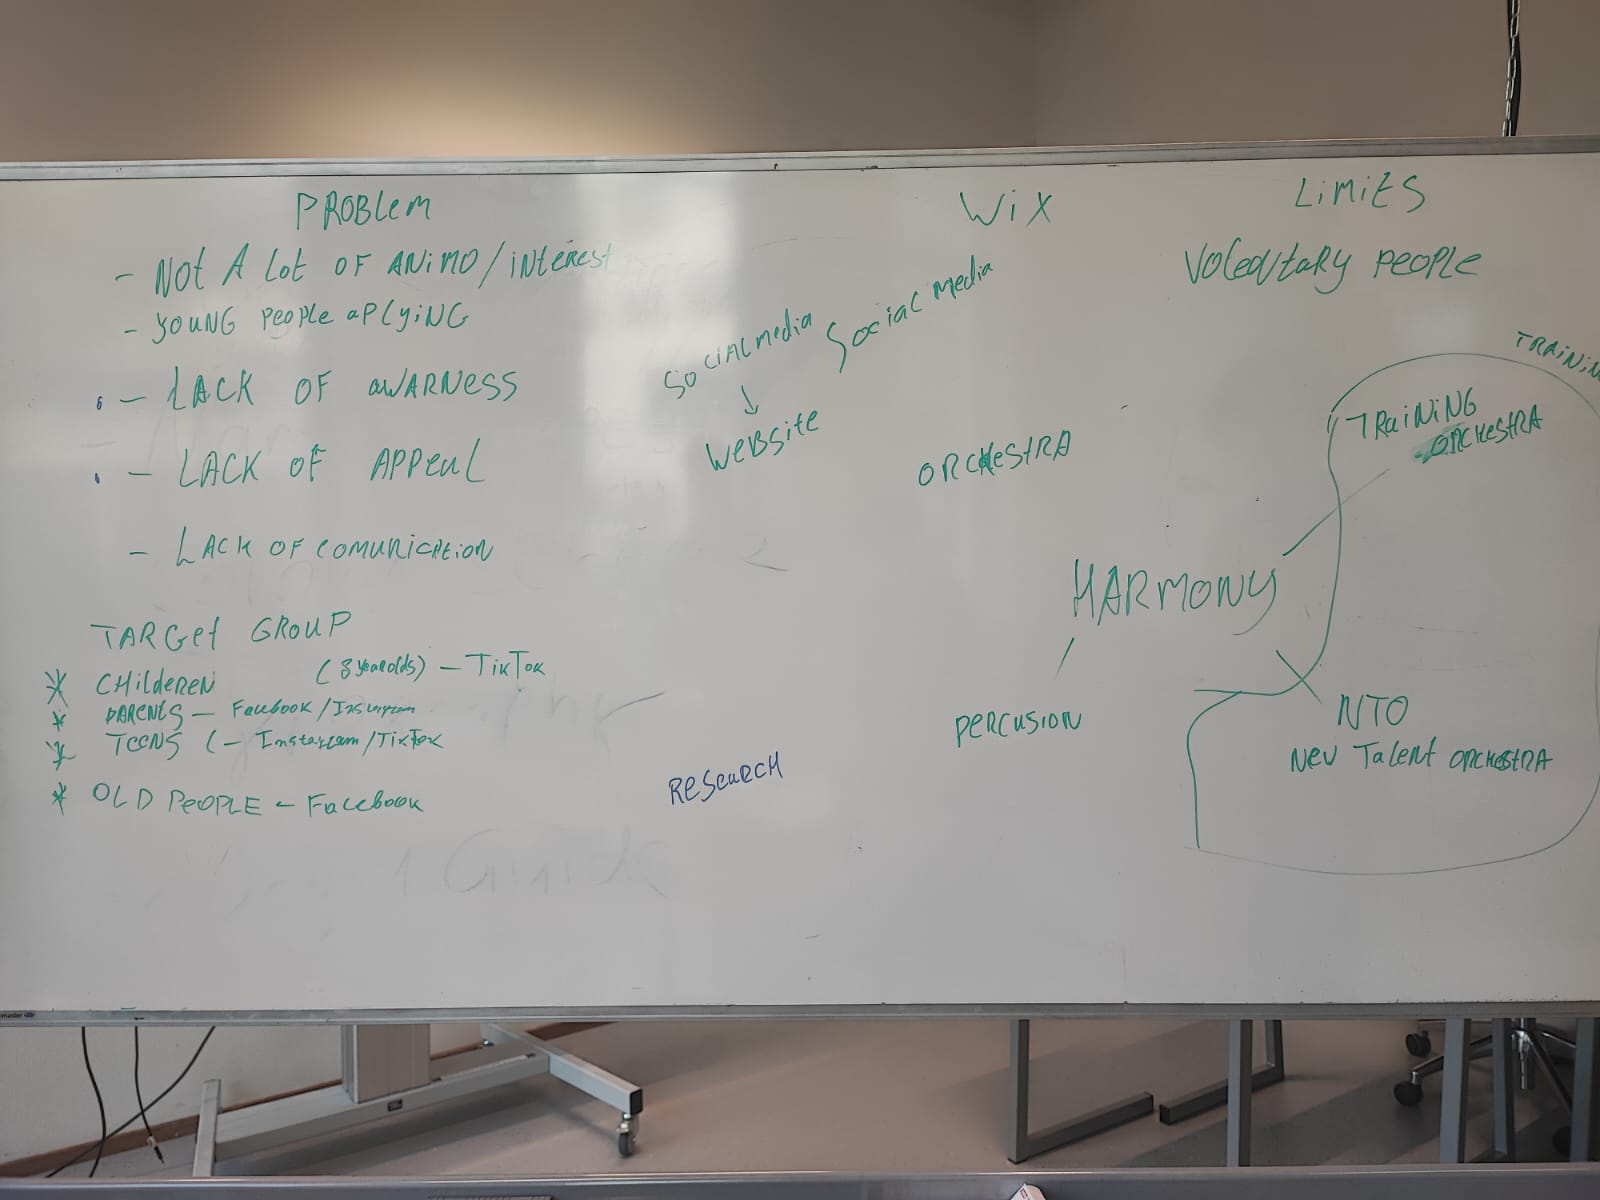 PROBLEM
- NOT A LOT OF ANIMO/INTEREST
- YOUNG PEOPLE APLYING
- LACK OF AWARNESS
- LACK OF APPEAL
- LACK OF COMUNICATION
TARGET GROUP
* CHILDEREN (8 year olds) - TikTok
* PARENTS - Facebook/Instagram
* TEENS (- Instagram/TikTok
* OLD PEOPLE - Facebook
SOCIAL MEDIA
↓
WEBSITE
RESEARCH
WIX
SOCIAL MEDIA
ORCHESTRA
HARMONY
PERCUSION
LIMITS
PEOPLE
TRAININ
TRAINING
ORCHESTRA
NTO
NEW TALENT ORCHESTRA